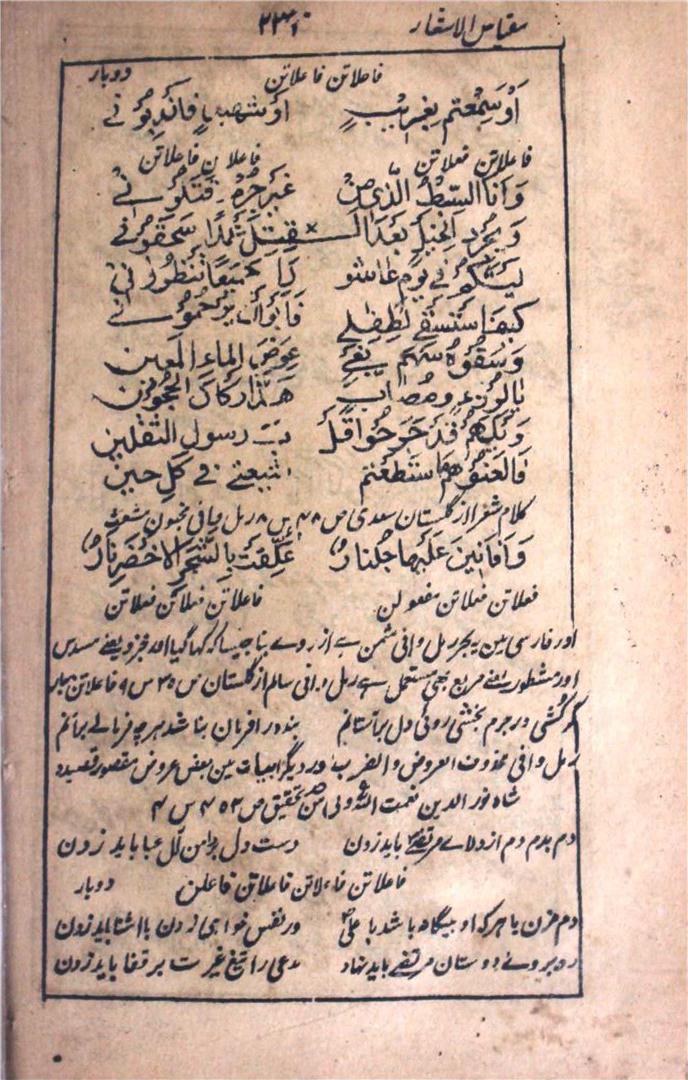 مقیاس الاشعار ۲۲۶
فاعلاتن فاعلاتن دوبار
اَوْ سَمِعْتُم بِغَرِیْبٍ اَوْ شَهِیدٍ فَانْدُبُوْنِی
فاعلاتن فعلاتن فاعلاتن فاعلاتن
وَاَنَا السِّبْطُ الَّذِی مِنْ غَیْرِ جُرْمٍ قَتَلُوْنِی
وَبِجُرْدِ الْخَیْلِ بَعْدَ الْـ ـقَتْلِ عَمْدًا سَحَقُوْنِی
لَیْتَکُمْ فِی یَوْمِ عَاشُو رَا جَمِیعًا تَنْظُرُوْنِی
کَیْفَ اَسْتَسْقِی لِطِفْلِی فَاَبَوْا اَنْ یَرْحَمُوْنِی
وَسَقَوْهُ سَهْمَ بَغْیٍ عِوَضَ الْمَاءِ الْمَعِیْنِ
یَا لَرُزْءٍ وَمُصَابٍ هَدَّ اَرْکَانَ الْحَجُوْنِ
وَیْلَهُمْ قَدْ جَرَحُوْا قَلْـ ـبَ رَسُولِ الثَّقَلَیْنِ
فَالْعَنُوْهُمْ مَا اسْتَطَعْتُمْ شِیْعَتِیْ فِی کُلِّ حِیْنِ
کلام شعرا از گلستان سعدی ص ۴۸ س ۸ رمل وافی مخبون مشعث
وَاَفَانِیْنَ عَلَیْهَا جُلَّنَارٌ عُلِّقَتْ بِالشَّجَرِ الْاَخْضَرِ نَارٌ
فعلاتن فعلاتن مفعولن فاعلاتن فعلاتن فعلاتن
اور فارسی مین یہ بحر رمل وافی مثمن ہے از روے بنا جیسا کہ کہا گیا اور مجزو یعنے مسدس
اور مشطور یعنے مربع بھی مستعمل ہے رمل وافی سالم از گلستان ص ۳۵ س ۹ فاعلاتن
گر کشی ور جرم بخشی روئی دل برآستانم بندہ را فرمان نباشد ہرچہ فرمائے برآنم
رمل وافی محذوف العروض والضرب ودر دیگر ابیات مین بعض عروض مقصور قصیدہ
شاہ نور الدین نعمت اللہ ولی تحقیق ص ۴۵۳ س ۴
دم بدم دم از ولاے مرتضےٰ باید زدن دست دل بر دامن آل عبا باید زدن
فاعلاتن فاعلاتن فاعلاتن فاعلن دوبار
دم مزن با ہر کہ او بیگانہ باشد با علیؑ ور نفس خواہی زدن با آشنا باید زدن
رہ بروے دوستان مرتضےٰ باید نہاد مدعی را تیغ غیرت بر قفا باید زدن